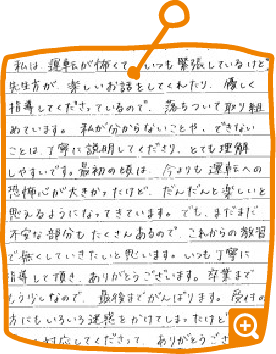 私は、運転が怖くて、いつも緊張しているけど
先生方が、楽しいお話をしてくれたり、優しく
指導してくださっているので、落ちついて取り組
めています。私が分からないことや、できない
ことは、丁寧に説明してくださり、とても理解
しやすいです。最初の頃は、今よりも運転への
恐怖心が大きかったけど、だんだんと楽しいと
思えるようになってきています。でも、まだまだ
不安な部分もたくさんあるので、これからの教習
で無くしていきたいと思います。いつも丁寧に
指導して頂き、ありがとうございます。卒業まで
もう少しなので、最後までがんばります。受付の
方にもいろいろ迷惑をかけてしまったけど
対応してくださって、ありがとうござ